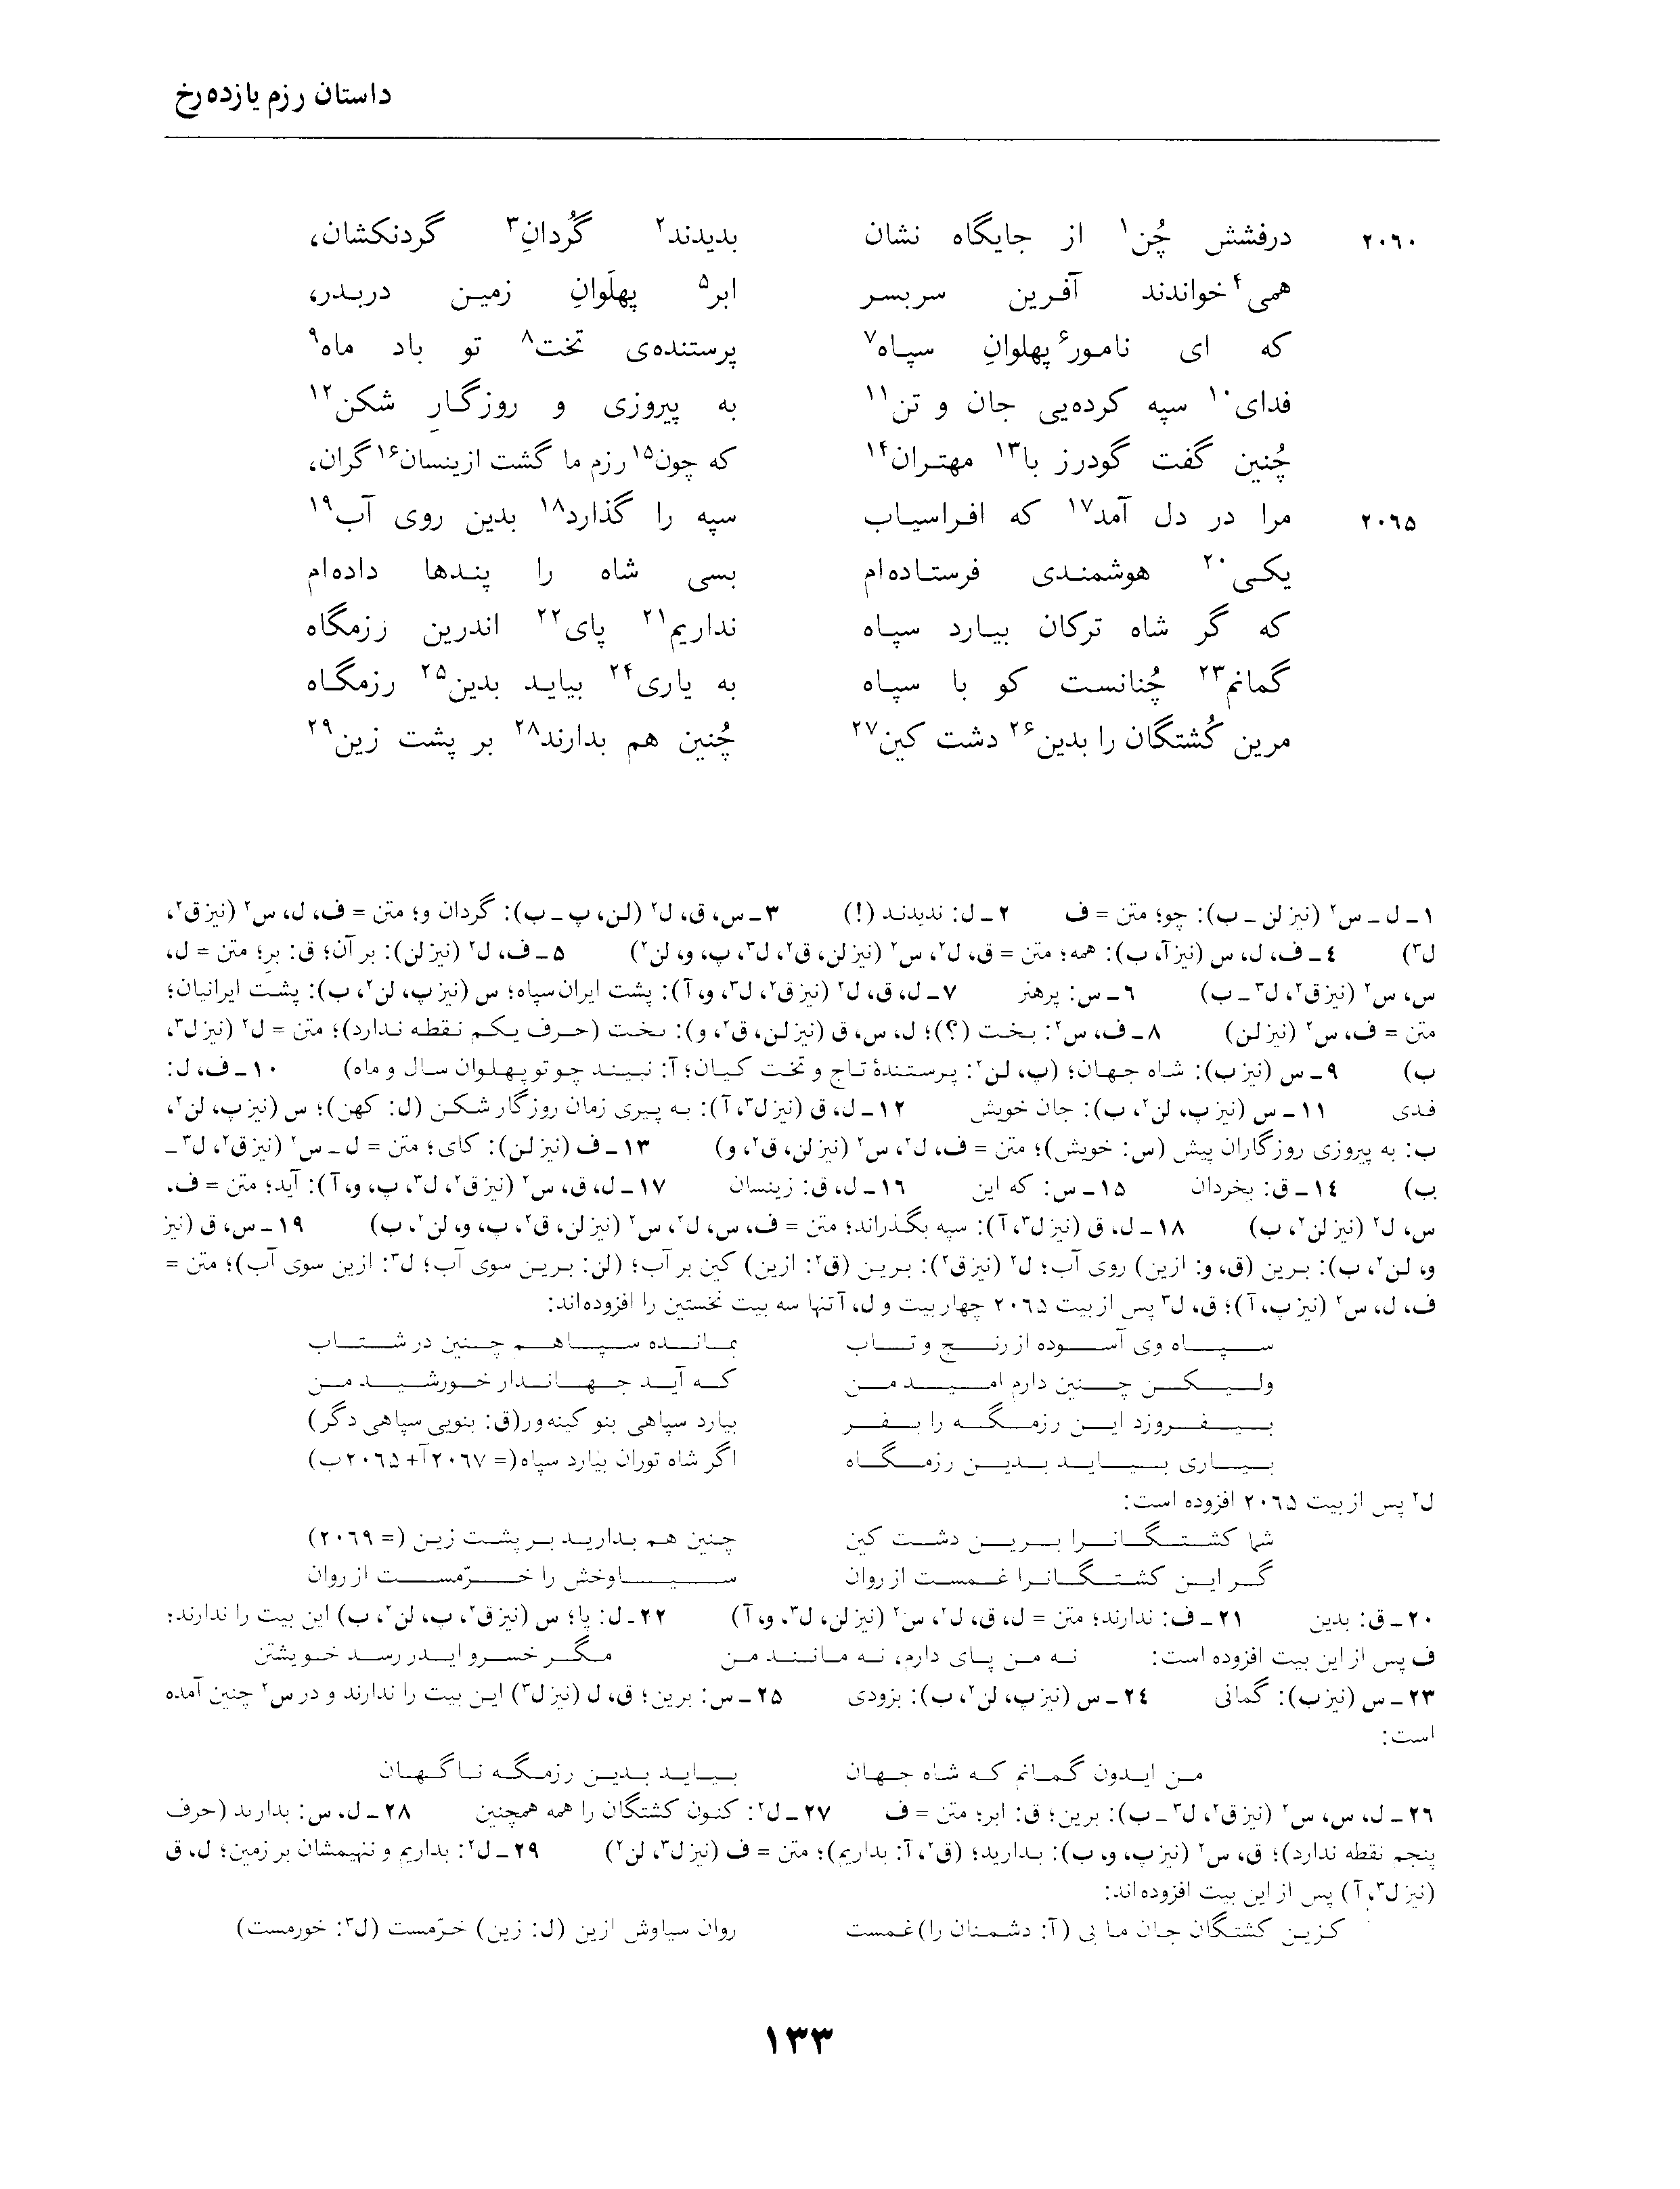 داستان رزم یازده‌رخ
۲۰۶۰ درفشش چُن۱ از جایگاه نشان بدیدند۲ گُردانِ۳ گردنکشان،
همی۴ خواندند آفرین سربسر ابر۵ پهلَوانِ زمین دربدر،
که ای نامور۶ پهلوانِ سپاه۷ پرستنده‌ی تخت۸ تو باد ماه۹
فدای۱۰ سپه کرده‌یی جان و تن۱۱ به پیروزی و روزگارِ شکن۱۲
چُنین گفت گودرز با۱۳ مهتران۱۴ که چون۱۵ رزم ما گشت ازینسان۱۶ گران،
۲۰۶۵ مرا در دل آمد۱۷ که افراسیاب سپه را گذارد۱۸ بدین روی آب۱۹
یکی۲۰ هوشمندی فرستاده‌ام بسی شاه را پندها داده‌ام
که گر شاه ترکان بیارد سپاه نداریم۲۱ پای۲۲ اندرین رزمگاه
گمانم۲۳ چُنانست کو با سپاه به یاری۲۴ بیاید بدین۲۵ رزمگاه
مرین کُشتگان را بدین۲۶ دشت کین۲۷ چُنین هم بدارند۲۸ بر پشت زین۲۹
۱ـ ل ـ س۲ (نیز لن ـ ب): چو؛ متن = ف ۲ـ ل: ندیدند (!) ۳ـ س، ق، ل۲ (لن، پ ـ ب): گردان و؛ متن = ف، ل، س۲ (نیز ق۲،
ل۳) ٤ـ ف، ل، س (نیز آ، ب): همه؛ متن = ق، ل۲، س۲ (نیز لن، ق۲، ل۳، پ، و، لن۲) ۵ـ ف، ل۲ (نیز لن): بر آن؛ ق: برِ؛ متن = ل،
س، س۲ (نیز ق۲، ل۳ ـ ب) ۶ـ س: پرهنر ۷ـ ل، ق، ل۲ (نیز ق۲، ل۳، و، آ): پشت ایران سپاه؛ س (نیز پ، لن۲، ب): پشت ایرانیان؛
متن = ف، س۲ (نیز لن) ۸ـ ف، س۲: بخت (؟)؛ ل، س، ق (نیز لن، ق۲، و): ٮخت (حرف یکم نقطه ندارد)؛ متن = ل۲ (نیز ل۳،
ب) ۹ـ س (نیز ب): شاه جهان؛ (پ، لن۲: پرستندهٔ تاج و تخت کیان؛ آ: نبیند چو تو پهلوان سال و ماه) ۱۰ـ ف، ل:
فدی ۱۱ـ س (نیز پ، لن۲، ب): جان خویش ۱۲ـ ل، ق (نیز ل۳، آ): به پیری زمان روزگار شکن (ل: کهن)؛ س (نیز پ، لن۲،
ب: به پیروزی روزگاران پیش (س: خویش)؛ متن = ف، ل۲، س۲ (نیز لن، ق۲، و) ۱۳ـ ف (نیز لن): کای؛ متن = ل ـ س۲ (نیز ق۲، ل۳ ـ
ب) ۱٤ـ ق: بخردان ۱۵ـ س: که این ۱۶ـ ل، ق: زینسان ۱۷ـ ل، ق، س۲ (نیز ق۲، ل۳، پ، و، آ): آید؛ متن = ف،
س، ل۲ (نیز لن۲، ب) ۱۸ـ ل، ق (نیز ل۳، آ): سپه بگذراند؛ متن = ف، س، ل۲، س۲ (نیز لن، ق۲، پ، و، لن۲، ب) ۱۹ـ س، ق (نیز
و، لن۲، ب): برین (ق، و: ازین) روی آب؛ ل۲ (نیز ق۲): برین (ق۲: ازین) کین بر آب؛ (لن: برین سوی آب؛ ل۳: ازین سوی آب)؛ متن =
ف، ل، س۲ (نیز پ، آ)؛ ق، ل۳ پس از بیت ۲۰۶۵ چهار بیت و ل، آ تنها سه بیت نخستین را افزوده‌اند:
سپاه وی آسوده از رنج و تاب بمانده سپاهم چنین در شتاب
ولیکن چنین دارم امید من که آید جهاندار خورشید من
بیفروزد این رزمگه را بفر بیارد سپاهی بنو کینه‌ور (ق: بنویی سپاهی دگر)
بیاری بیاید بدین رزمگاه اگر شاه توران بیارد سپاه (= ۲۰۶۷آ + ۲۰۶۵ب)
ل۲ پس از بیت ۲۰۶۵ افزوده است:
شما کشتگانرا برین دشت کین چنین هم بدارید بر پشت زین (= ۲۰۶۹)
گر این کشتگانرا غمست از روان سیاوخش را خرّمست از روان
۲۰ـ ق: بدین ۲۱ـ ف: ندارند؛ متن = ل، ق، ل۲، س۲ (نیز لن، ل۳، و، آ) ۲۲ـ ل: پا؛ س (نیز ق۲، پ، لن۲، ب) این بیت را ندارند؛
ف پس از این بیت افزوده است: نه من پای دارم، نه مانند من مگر خسرو ایدر رسد خویشتن
۲۳ـ س (نیز ب): گمانی ۲٤ـ س (نیز پ، لن۲، ب): بزودی ۲۵ـ س: برین؛ ق، ل (نیز ل۳) این بیت را ندارند و در س۲ چنین آمده
است:
من ایدون گمانم که شاه جهان بیاید بدین رزمگه ناگهان
۲۶ـ ل، س، س۲ (نیز ق۲، ل۳ ـ ب): برین؛ ق: ابر؛ متن = ف ۲۷ـ ل۲: کنون کشتگان را همه همچنین ۲۸ـ ل، س: بدارٮد (حرف
پنجم نقطه ندارد)؛ ق، س۲ (نیز پ، و، ب): بدارید؛ (ق۲، آ: بداریم)؛ متن = ف (نیز ل۳، لن۲) ۲۹ـ ل۲: بداریم و ننهیمشان بر زمین؛ ل، ق
(نیز ل۳، آ) پس از این بیت افزوده‌اند:
کزین کشتگان جان ما بی (آ: دشمنان را) غمست روان سیاوش ازین (ل: زین) خرّمست (ل۳: خورمست)
۱۳۳